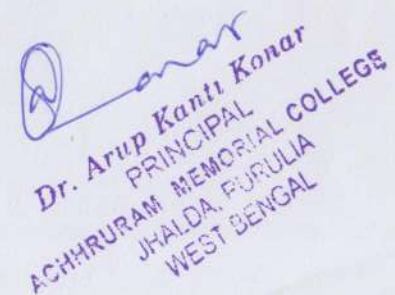 Konar
Dr. Arup Kanti Konar
PRINCIPAL
ACHHRURAM MEMORIAL COLLEGE
JHALDA, PURULIA
WEST BENGAL